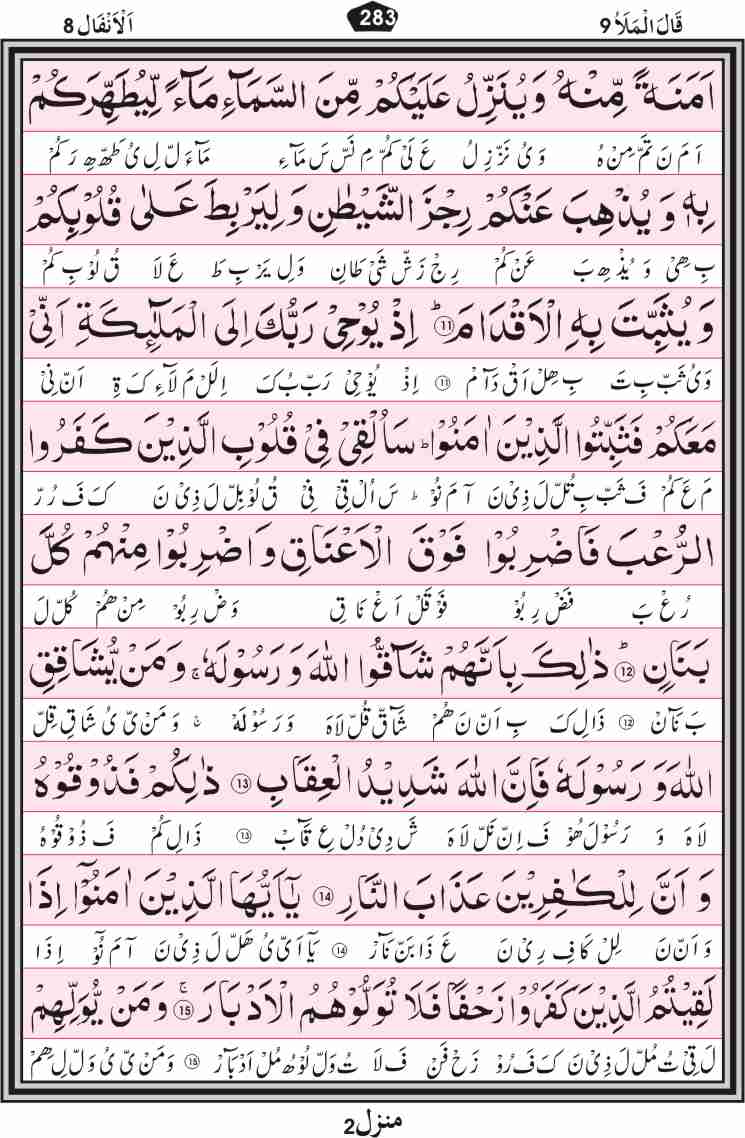 قَالَ الْمَلَاُ 9 283 اَلْاَنْفَال 8
اَمَنَةً مِّنْهُ وَيُنَزِّلُ عَلَيْكُمْ مِّنَ السَّمَآءِ مَآءً لِّيُطَهِّرَكُمْ
اَ مَ نَ تَمْ مِنْ هُ وَ ىُ نَزْ زِ لُ عَ لَىْ كُمْ مِ نَسْ سَ مَآءِ مَآءَ لْ لِ ىُ طَهْ هِ رَ كُمْ
بِهٖ وَ يُذْهِبَ عَنْكُمْ رِجْزَ الشَّيْطٰنِ وَ لِيَرْبِطَ عَلٰى قُلُوْبِكُمْ
بِ هِىْ وَ يُذْ هِ بَ عَنْ كُمْ رِجْ زَ شْ شَىْ طَانِ وَ لِ يَرْ بِ طَ عَ لَا قُ لُوْ بِ كُمْ
وَ يُثَبِّتَ بِهِ الْاَقْدَامَ ؕ ۱۱ اِذْ يُوْحِىْ رَبُّكَ اِلَى الْمَلٰٓئِكَةِ اَنِّىْ
وَ ىُ ثَبْ بِ تَ بِ هِلْ اَقْ دَآ مْ ۱۱ اِذْ يُوْ حِىْ رَبْ بُ كَ اِلَلْ مَ لَآءِ كَ ةِ اَنْ نِىْ
مَعَكُمْ فَثَبِّتُوا الَّذِيْنَ اٰمَنُوْا ؕ سَاُلْقِىْ فِىْ قُلُوْبِ الَّذِيْنَ كَفَرُوا
مَ عَ كُمْ فَ ثَبْ بِ تُلْ لَ ذِىْ نَ آ مَ نُوْ ؕ سَ اُلْ قِىْ فِىْ قُ لُوْ بِلْ لَ ذِىْ نَ كَ فَ رُرْ
الرُّعْبَ فَاضْرِبُوْا فَوْقَ الْاَعْنَاقِ وَاضْرِبُوْا مِنْهُمْ كُلَّ
رُعْ بَ فَضْ رِ بُوْ فَوْ قَلْ اَعْ نَا قِ وَضْ رِ بُوْ مِنْ هُمْ كُلْ لَ
بَنَانٍ ؕ ۱۲ ذٰلِكَ بِاَنَّهُمْ شَآقُّوا اللهَ وَ رَسُوْلَهٗ ۚ وَمَنْ يُّشَاقِقِ
بَ نَآنْ ۱۲ ذَالِ كَ بِ اَنْ نَ هُمْ شَآقْ قُلْ لَاهَ وَ رَ سُوْ لَهْ ۚ وَ مَنْ ىْ ىُ شَاقِ قِلْ
اللهَ وَ رَسُوْلَهٗ فَاِنَّ اللهَ شَدِيْدُ الْعِقَابِ ۱۳ ذٰلِكُمْ فَذُوْقُوْهُ
لَاهَ وَ رَسُوْلَ هُوْ فَ اِنْ نَلْ لَاهَ شَ دِىْ دُلْ عِ قَآبْ ۱۳ ذَالِ كُمْ فَ ذُوْ قُوْهُ
وَ اَنَّ لِلْكٰفِرِيْنَ عَذَابَ النَّارِ ۱۴ يٰۤاَيُّهَا الَّذِيْنَ اٰمَنُوْۤا اِذَا
وَ اَنْ نَ لِلْ كَافِ رِىْ نَ عَ ذَا بَنْ نَآرْ ۱۴ يَآ اَىْ ىُ هَلْ لَ ذِىْ نَ آ مَ نُوْٓ اِذَا
لَقِيْتُمُ الَّذِيْنَ كَفَرُوْا زَحْفًا فَلَا تُوَلُّوْهُمُ الْاَدْبَارَ ۚ ۱۵ وَمَنْ يُّوَلِّهِمْ
لَ قِىْ تُ مُلْ لَ ذِىْ نَ كَ فَ رُوْ زَحْ فَنْ فَ لَا تُ وَلْ لُوْ هُ مُلْ اَدْ بَآرْ ۱۵ وَ مَنْ ىْ ىُ وَلْ لِ هِمْ
منزل 2